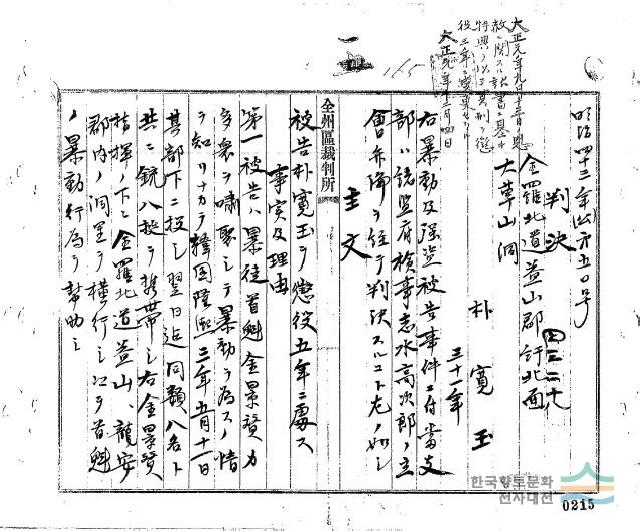 大正元年九月三十日 恩
赦ニ関スル詔書ニ基キ
特典ヲ以テ其刑ヲ懲
役三年ニ変更セラル
大正元年十二月四日
165
明治四十三年(公)方五〇号
判決
全羅北道益山郡訐北面
大草山洞
朴寛玉
三十一年
右暴動及强盜被告事件ニ付當支
部ハ統監府検事志水高次郎ノ立
會弁降ヲ経テ判決スルコト左ノ如シ
主文
全州區裁判所
被告朴寛玉ヲ懲役五年ニ處ス
事実及理由
第一被告ハ暴徒首魁金景賛カ
多衆ヲ嘯聚シテ暴動ヲ為スノ情
ヲ知リナカラ韓国隆熙三年五月十一日
其部下ニ投シ翌日迄同類八名ト
共ニ銃八挺ヲ携帯シ右金景賛
指揮ノ下ニ全羅北道益山、龍安
郡内ノ洞里ヲ横行シ以テ首魁
ノ暴動行為ヲ幇助シ
한국향토문화
전자대전
0215